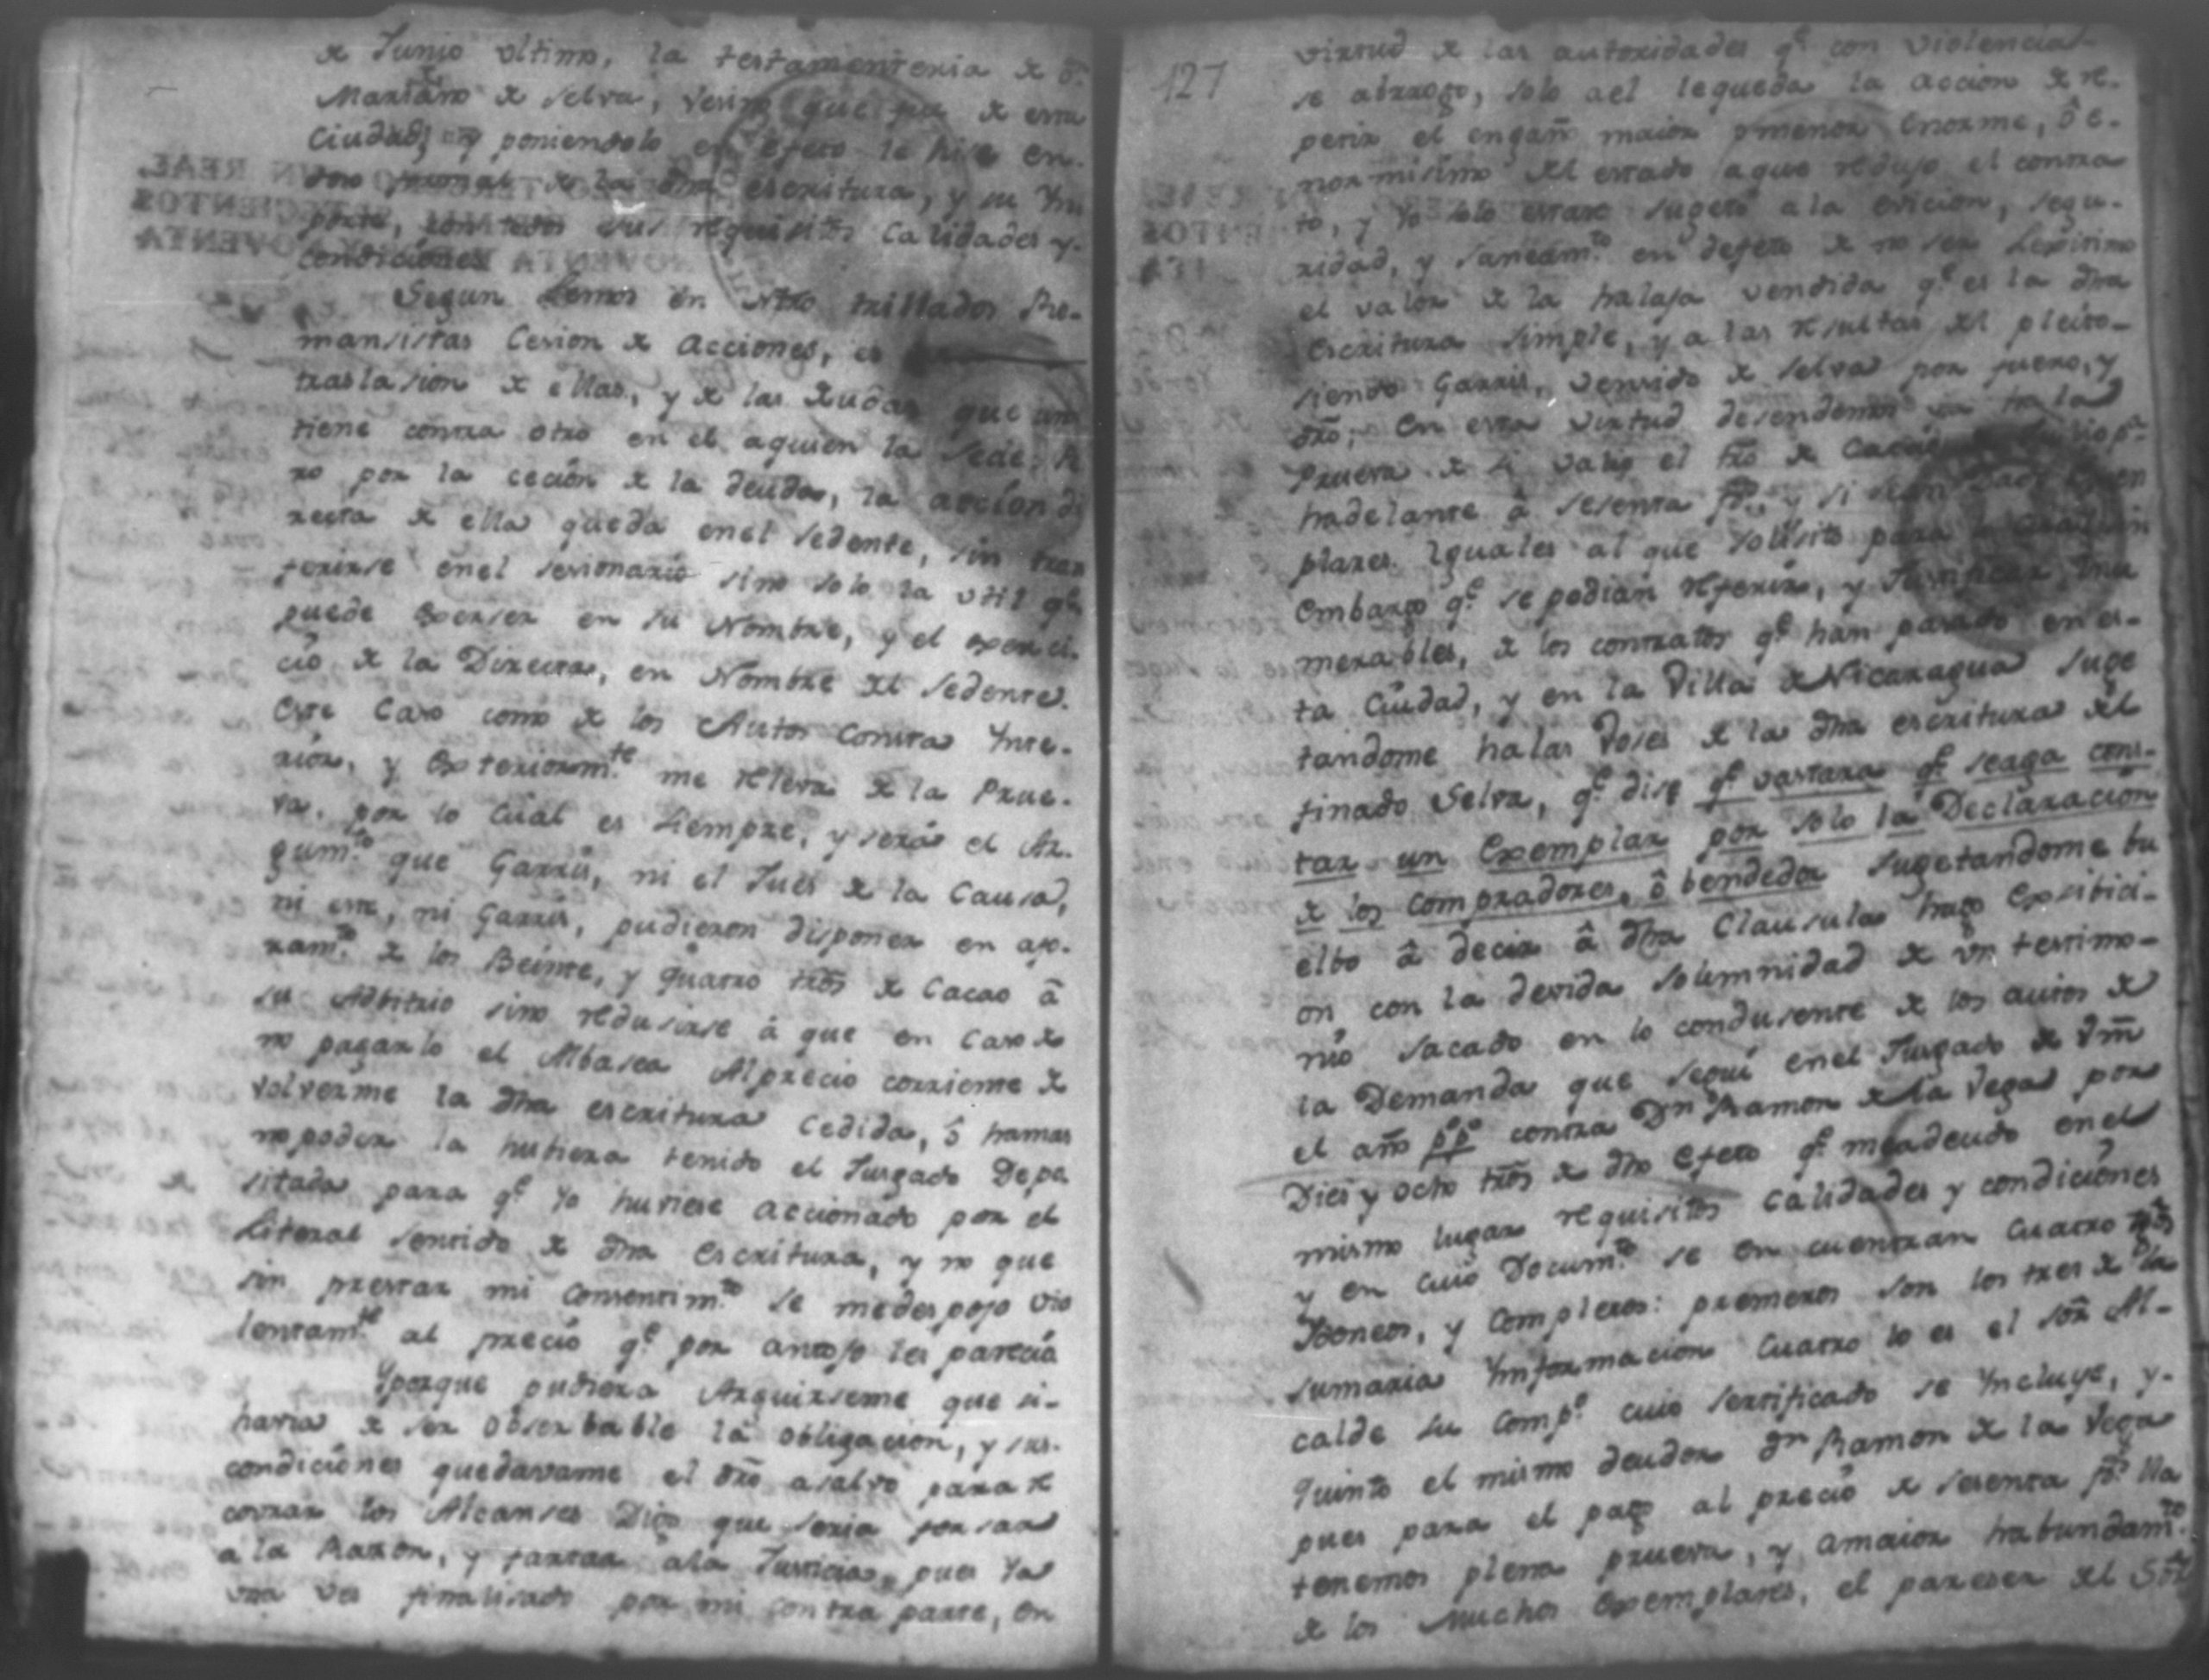 de Junio ultimo, la testamenteria de Dn.
Mariano de Selva, vesino que fue de esta
Ciudad, y poniendolo en efecto le hise en-
de la dha escritura, y su Ym
porte, con todos sus requisitos calidades y
condiciones
Segun Lemos en Ntro trillados Pre-
mansistas Cesion de acciones, es
traslasion de ellas, y de las Deudas que uno
tiene contra otro en el aquien la sede. Pe
ro por la ceción de la deuda, la acción di
recta de ella queda enel sedente, sin tran
ferirse enel sesionario sino solo la util qe.
puede exerser en su Nombre, y el exerci-
cio de la Directa, en Nombre del Sedente.
Este Caso como de los Autos Consta Ynte-
rior, y exteriormte. me releva de la Prue-
va, por lo cual es siempre, y será el Ar-
gumto. que Garrís, ni el Jues de la Causa,
ni este, ni Garrís, pudieron disponer en afo-
ramto. de los Beinte, y quatro tros de Cacao â
su Adbitrio sino redusirse â que en Caso de
no pagarlo el Albasea Alprecio corriente de
volverme la dha escritura Cedida, ô hamas
nopoder la hubiera tenido el Jusgado Depo
sitada para qe. Yo huviese accionado por el
Literal sentido de dha Escritura, y no que
sin prestar mi Consentimto. se medespojo vio
lentamte. al precio qe. por antojo les parecia
Yporque pudiera Arguirseme que si-
havia de ser obserbable la obligacion, y sus-
condiciones quedavame el dro asalvo para re
covrar los Alcanses Digo que seria forsar
a la Razon, y faltar ala Justicia, pues Ya
una ves finalisado por mi contra parte, en
127
virtud de las autoridades qe. con violencia
se abrrogo, solo ael lequeda la accion de re-
petir el engañ maior omenor Enorme, ô e-
normisimo del estado aque redujo el contra
to, y Yo solo estare sugeto ala evicion, segu-
ridad, y saneamto. en defeto de no ser Lexitimo
el valor de la halaja vendida qe. es la dha
Escritura simple, y a las resultas del pleito-
siendo Garris, vensido de Selva por fuero, y
dro; En esta virtud desendemos ya ha la
Prueva de si valio el tro de Cacao
hadelante â sesenta ps., y si
plares Iguales al que solisito para
embargo qe. se podian referir, y Justificar Ynu
merables, de los contratos qe. han pasado enes-
ta Ciudad, y en la Villa de Nicaragua Suge
tandome halas Voses de la dha escritura del
finado Selva, qe. dise qe. vastara qe. seaga cons-
tar un Exemplar por solo la Declaración
de los compradores, ô bendedor sugetandome bu
elbo â decir â dha Clausula hago exsibici-
on con la devida solumnidad de un testimo-
nio sacado en lo condusente de los autos de
la Demanda que seguí enel Jusgado de Vm
el año ppo. contra Dn Ramon de la Vega por
Dies y ocho tros de dho Efeto qe. meadeudo enel
mismo lugar requisitos calidades y condiciones
y en cuio Documto. se en cuentran cuatro tgos
Ydoneos, y Completos: premeros son los tres de la
sumaria Ynformacion Cuatro lo es el Sor Al-
calde su Compo. cuio sertificado se Yncluye, y-
quinto el mismo deudor Dn Ramon de la Vega
pues para el pago al precio de sesenta ps. Ya
tenemos plena prueva, y amaior habundamto.
de los Muchos exemplares, el pareser del Sor